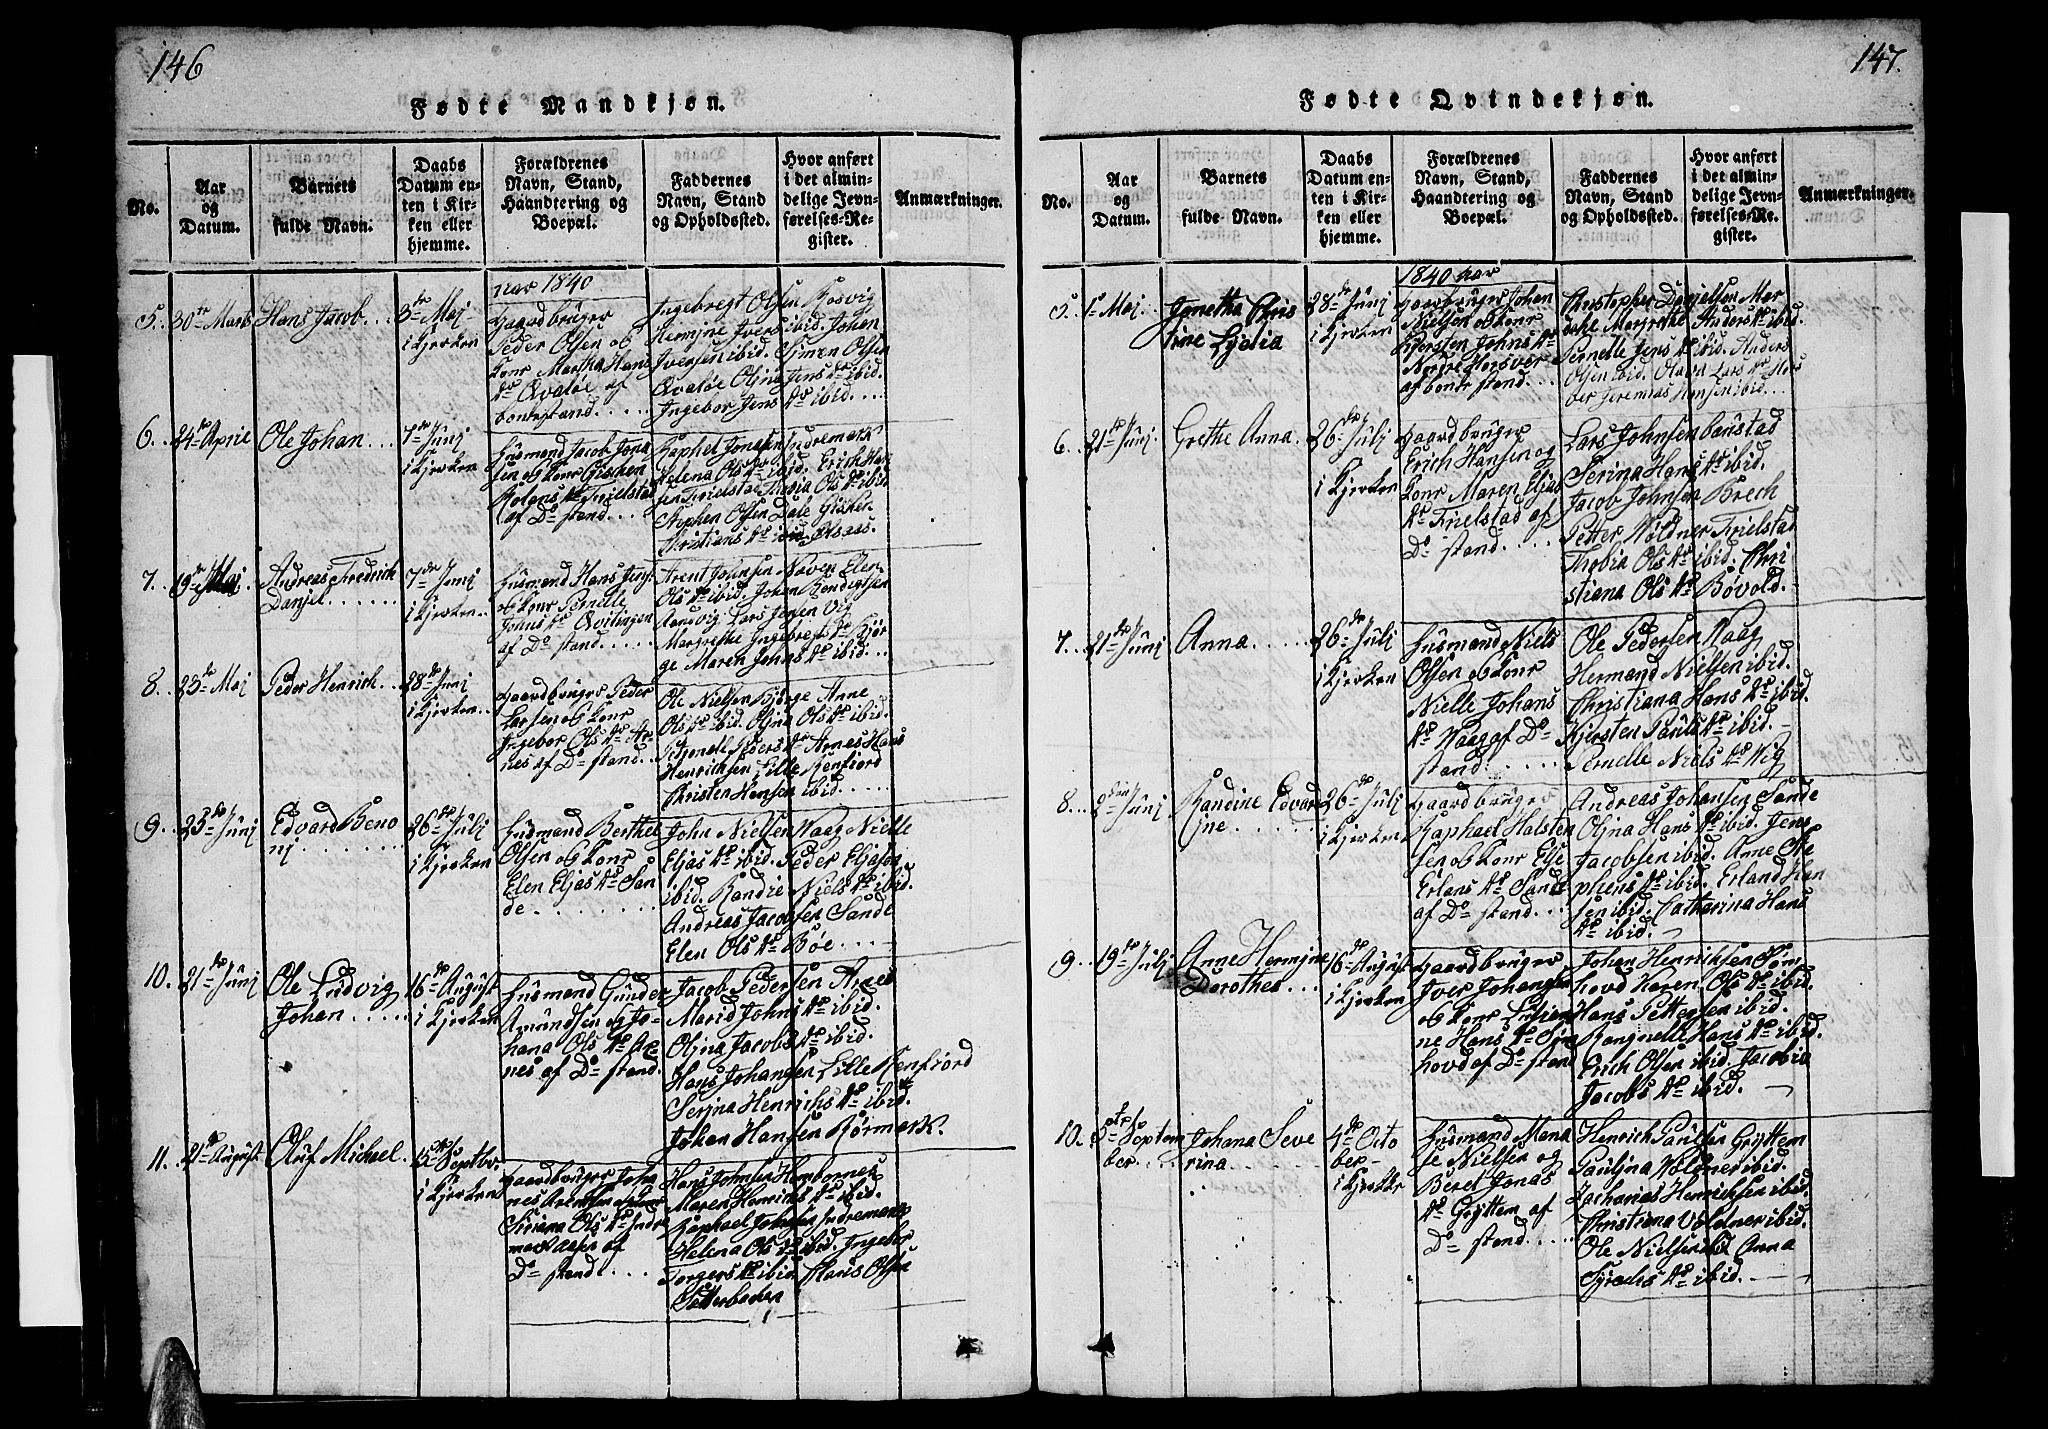 146
Fødte Mandkjøn.
No.
Aar
og
Datum.
Barnets
fulde Navn.
Daabs
Datum en-
ten i Kir-
ken eller
hjemme.
Forældrenes
Navn, Stand,
Haandtering og
Boepæl.
Faddernes
Navn, Stand
og Opholdssted.
Hvor anført
i det almin-
delige Jevn-
førelses-Re-
gister.
Anmærkninger.
aar 1840
5. 30te Marts
Hans Jacob
3de Maj
i Kjerken
Gaardbruger
Peder Olsen og
Kone Martha Hans
dr Qvaløe af
bondestand
Ingebregt Olsen Rosvig
Hemine Ivers ibid. Johan
Iversen ibid. Simen Olsen
Qvaløe Oljna Jens dr ibid.
Ingebor Jens dr ibid.
6. 24de April
Ole Johan
7de Junj
i Kjerken
Husmand Jacob Jona
sen og Kone
dr Trælstad
af Do stand
Raphel Jonesen Indremark
Helena Ols dr ibid. Erich Han
sen Trælstad Thobia Ols dr ibid
Stephen Olsen Dale
Kristians dr ibid
7. 19de Maj
Andreas Fredrich
Danjel
7de Junj
i Kjerken
Husmand Hans
og Kone Pernelle
Johns dr Qvitingen
af Do stand
Arent Johnsen Naven Elen
Ols dr ibid. Johan
Lars Vig
Margrethe Ingebregts dr Bjør
ge Maren Johns dr ibid.
8. 25de Maj
Peder Henrich
28de Junj
i Kjerken
Gaardbruger Peder
Larsen og Kone
Ingebor Ols dr Ar
nes af Do stand
Ole Nielsen Bjørge Anne
Ols dr ibid. Oljna Ols dr ibid.
Petronelle Peders dr Arnes Hans
Henrichsen Lille Renfiord
Christen Hansen ibid.
9. 25de Junj
Edvard Beno
nj
26de Julj
i Kjerken
Husmand Berthel
Olsen og Kone
Elen Eljas dr San
de
John Nielsen Waag Nielle
Eljas dr ibid. Peder Eljasen
ibid. Randie Niels dr ibid.
Andreas Jacobsen Sande
Elen Ols dr Bøe
10. 21de Junj
Ole Ludvig
Johan
16de August
i Kjerken
Husmand Gunder
Amundsen og Jo-
hana Ols dr Ar
nes af Do stand.
Jacob Pedersen Arnes
Marid Johns dr ibid.
Oljna Jacobs dr ibid.
Hans Johansen Lille Renfiord
Serjna Henrichs dr ibid.
Johan Hansen Rørmark.
11. 21de August
Oluf Michael
15de Septbr.
i Kjerken
Gaardbruger Joha
nes Arentsen og Kone
Siriana Ols dr Indre
mark af
Do stand
Hans Johnsen
Maren Henrichs dr ibid.
Raphael Johnsen Indremark
Helena Ols dr ibid. Ingebor
Torgers dr ibid. Hans Olsen
147.
Fødte Qvindekjøn.
No.
Aar
og
Datum.
Barnets
fulde Navn.
Daabs
Datum en-
ten i Kir-
ken eller
hjemme.
Forældrenes
Navn, Stand,
Haandtering og
Boepæl.
Faddernes
Navn, Stand
og Opholdssted.
Hvor anført
i det almin-
delige Jevn-
førelses-Re-
gister.
Anmærkninger.
1840 aar
5. 1ste Maj
Janetha Chris
tine Lydia
28de Junj
i Kjerken
Gaardbruger Johan
Nielsen og Kone
Kjersten Johns dr
Nordre Horsver
af bonde stand
Christopher Danjelsen
Margrethe Anders dr ibid.
Pernelle Jens dr ibid. Anders
Olsen ibid. Olava Lars dr
Jeremias Hansen ibid.
6. 21de Junj.
Grethe Anna.
26de Julj
i Kjerken
Gaardbruger
Erich Hansen og
Kone Maren Eljas
dr Trælstad af
Do stand
Lars Johnsen Baustad
Serina Hans dr ibid.
Jacob Johnsen Brech
Petter Woldner Trælstad
Thobia Ols dr ibid. Chri
stiana Ols dr Bøvold.
7. 21de Junj
Anna
26de Julj
i Kjerken
Husmand Niels
Olsen og Kone
Nielle Johans
dr Waag af Do
stand
Ole Pedersen Waag
Hermand Nielsen ibid.
Christiana Hans dr ibid.
Kjersten Pauls dr ibid.
Pernelle Niels dr Wig
8. 2den Junj
Randine Edvar
ine
26de Julj
i Kjerken
Gaardbruger
Raphael Halsten
sen og Kone Else
Erlans dr Sande
af Do stand
Andreas Johansen Sande
Oljna Hans dr ibid. Jens
Jacobsen ibid. Anne Ste
phens dr ibid. Erland Han
sen ibid. Catharina Hans
dr ibid.
9. 19de Julj
Anne Hermjne
Dorothea
16de August
i Kjerken
Gaardbruger
Iver Johansen
og Kone
ne Hans dr Søm
hovd af Do stand
Johan Henrichsen Søm
hovd Karen Ols dr ibid.
Hans Pettersen ibid.
Rangnelle Hans dr ibid.
Erich Olsen ibid. Jacobia
Jacobs dr ibid.
10. 5te Septem
ber
Johana Seve
rina
4de Octo
ber
i Kjerken
Husmand Mana
se Nielsen og
Beret Jonas
dr Gryttem af
Do stand
Henrich Paulsen Gryttem
Pauljna Woldner ibid.
Zacharias Henrichsen ibid.
Christiana Voldner ibid.
Ole Nielsen ibid Anna
Syrachs dr ibid.